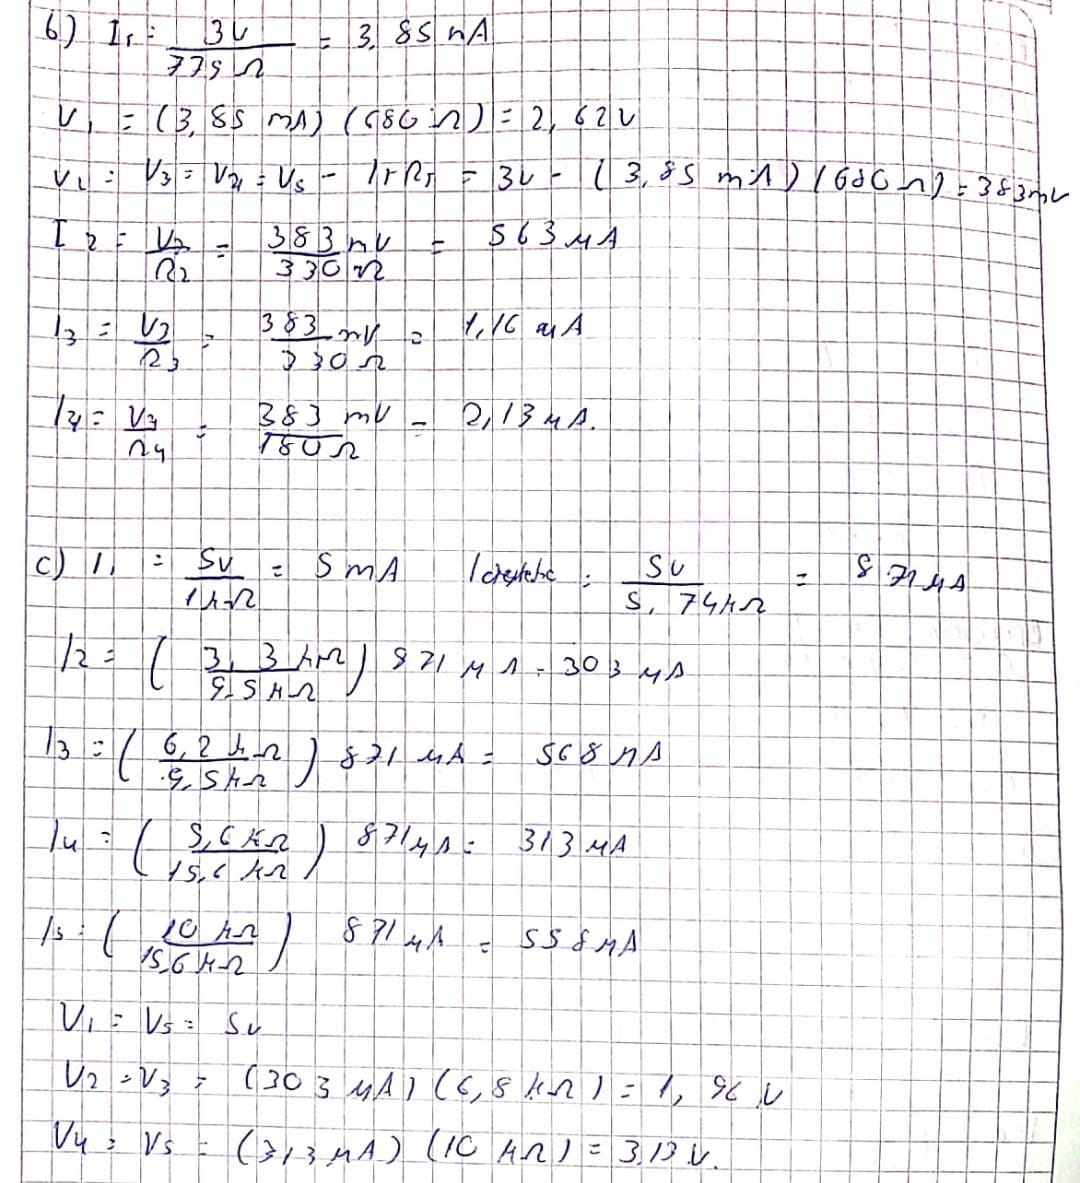 b) I₁ = 3V / 779Ω = 3,85 mA
V₁ = (3,85 mA) (680 Ω) = 2,62V
V₂ = V₃ = V₄ = Vs - IrRr = 3V - (3,85 mA) (680 Ω) = 383mV
I₂ = V₂ / R₂ = 383 mV / 330 Ω = 563 μA
I₃ = V₃ / R₃ = 383 mV / 330 Ω = 1,16 mA
I₄ = V₃ / R₄ = 383 mV / 180 Ω = 2,13 μA.
c) I₁ = 5V / 1kΩ = 5 mA = 5V / 5,74kΩ = 871 μA
I₂ = ( 3,3 kΩ / 9,5 kΩ ) 871 μA = 303 μA
I₃ = ( 6,2 kΩ / 9,5 kΩ ) 871 μA = 568 μA
I₄ = ( 5,6 kΩ / 15,6 kΩ ) 871 μA = 313 μA
I₅ = ( 10 kΩ / 15,6 kΩ ) 871 μA = 558 μA
V₁ = Vs = 5V
V₂ = V₃ = (303 μA) (6,8 kΩ) = 1,96 V
V₄ = V₅ = (313 μA) (10 kΩ) = 3,13 V.